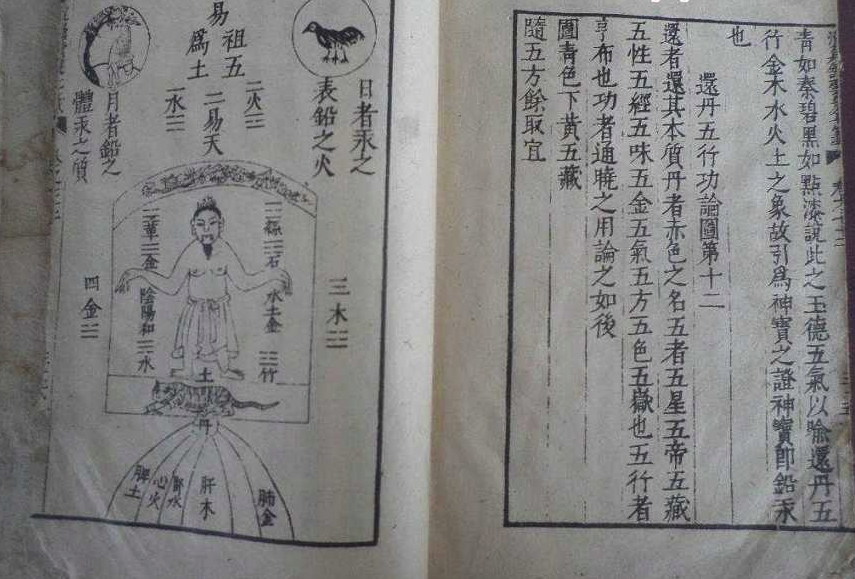 青如秦碧黑如點漆說此之玉德五氣以喻還丹五
行金木水火土之象故引爲神寶之證神寶即鉛汞
也
還丹五行功論圖第十二
還者還其本質丹者赤色之名五者五星五帝五藏
五性五經五味五金五氣五方五色五嶽也五行者
亨布也功者通曉之用論之如後
圖靑色下黃五藏
隨五方餘取宜
日者汞之
表鉛之火
易祖五
爲土
二火
二易天
一水
月者鉛之
體汞之質
三木
四金
石
水土金
竹
金
陰陽和
水
土
丹
肺金
肝木
腎水
心火
脾土